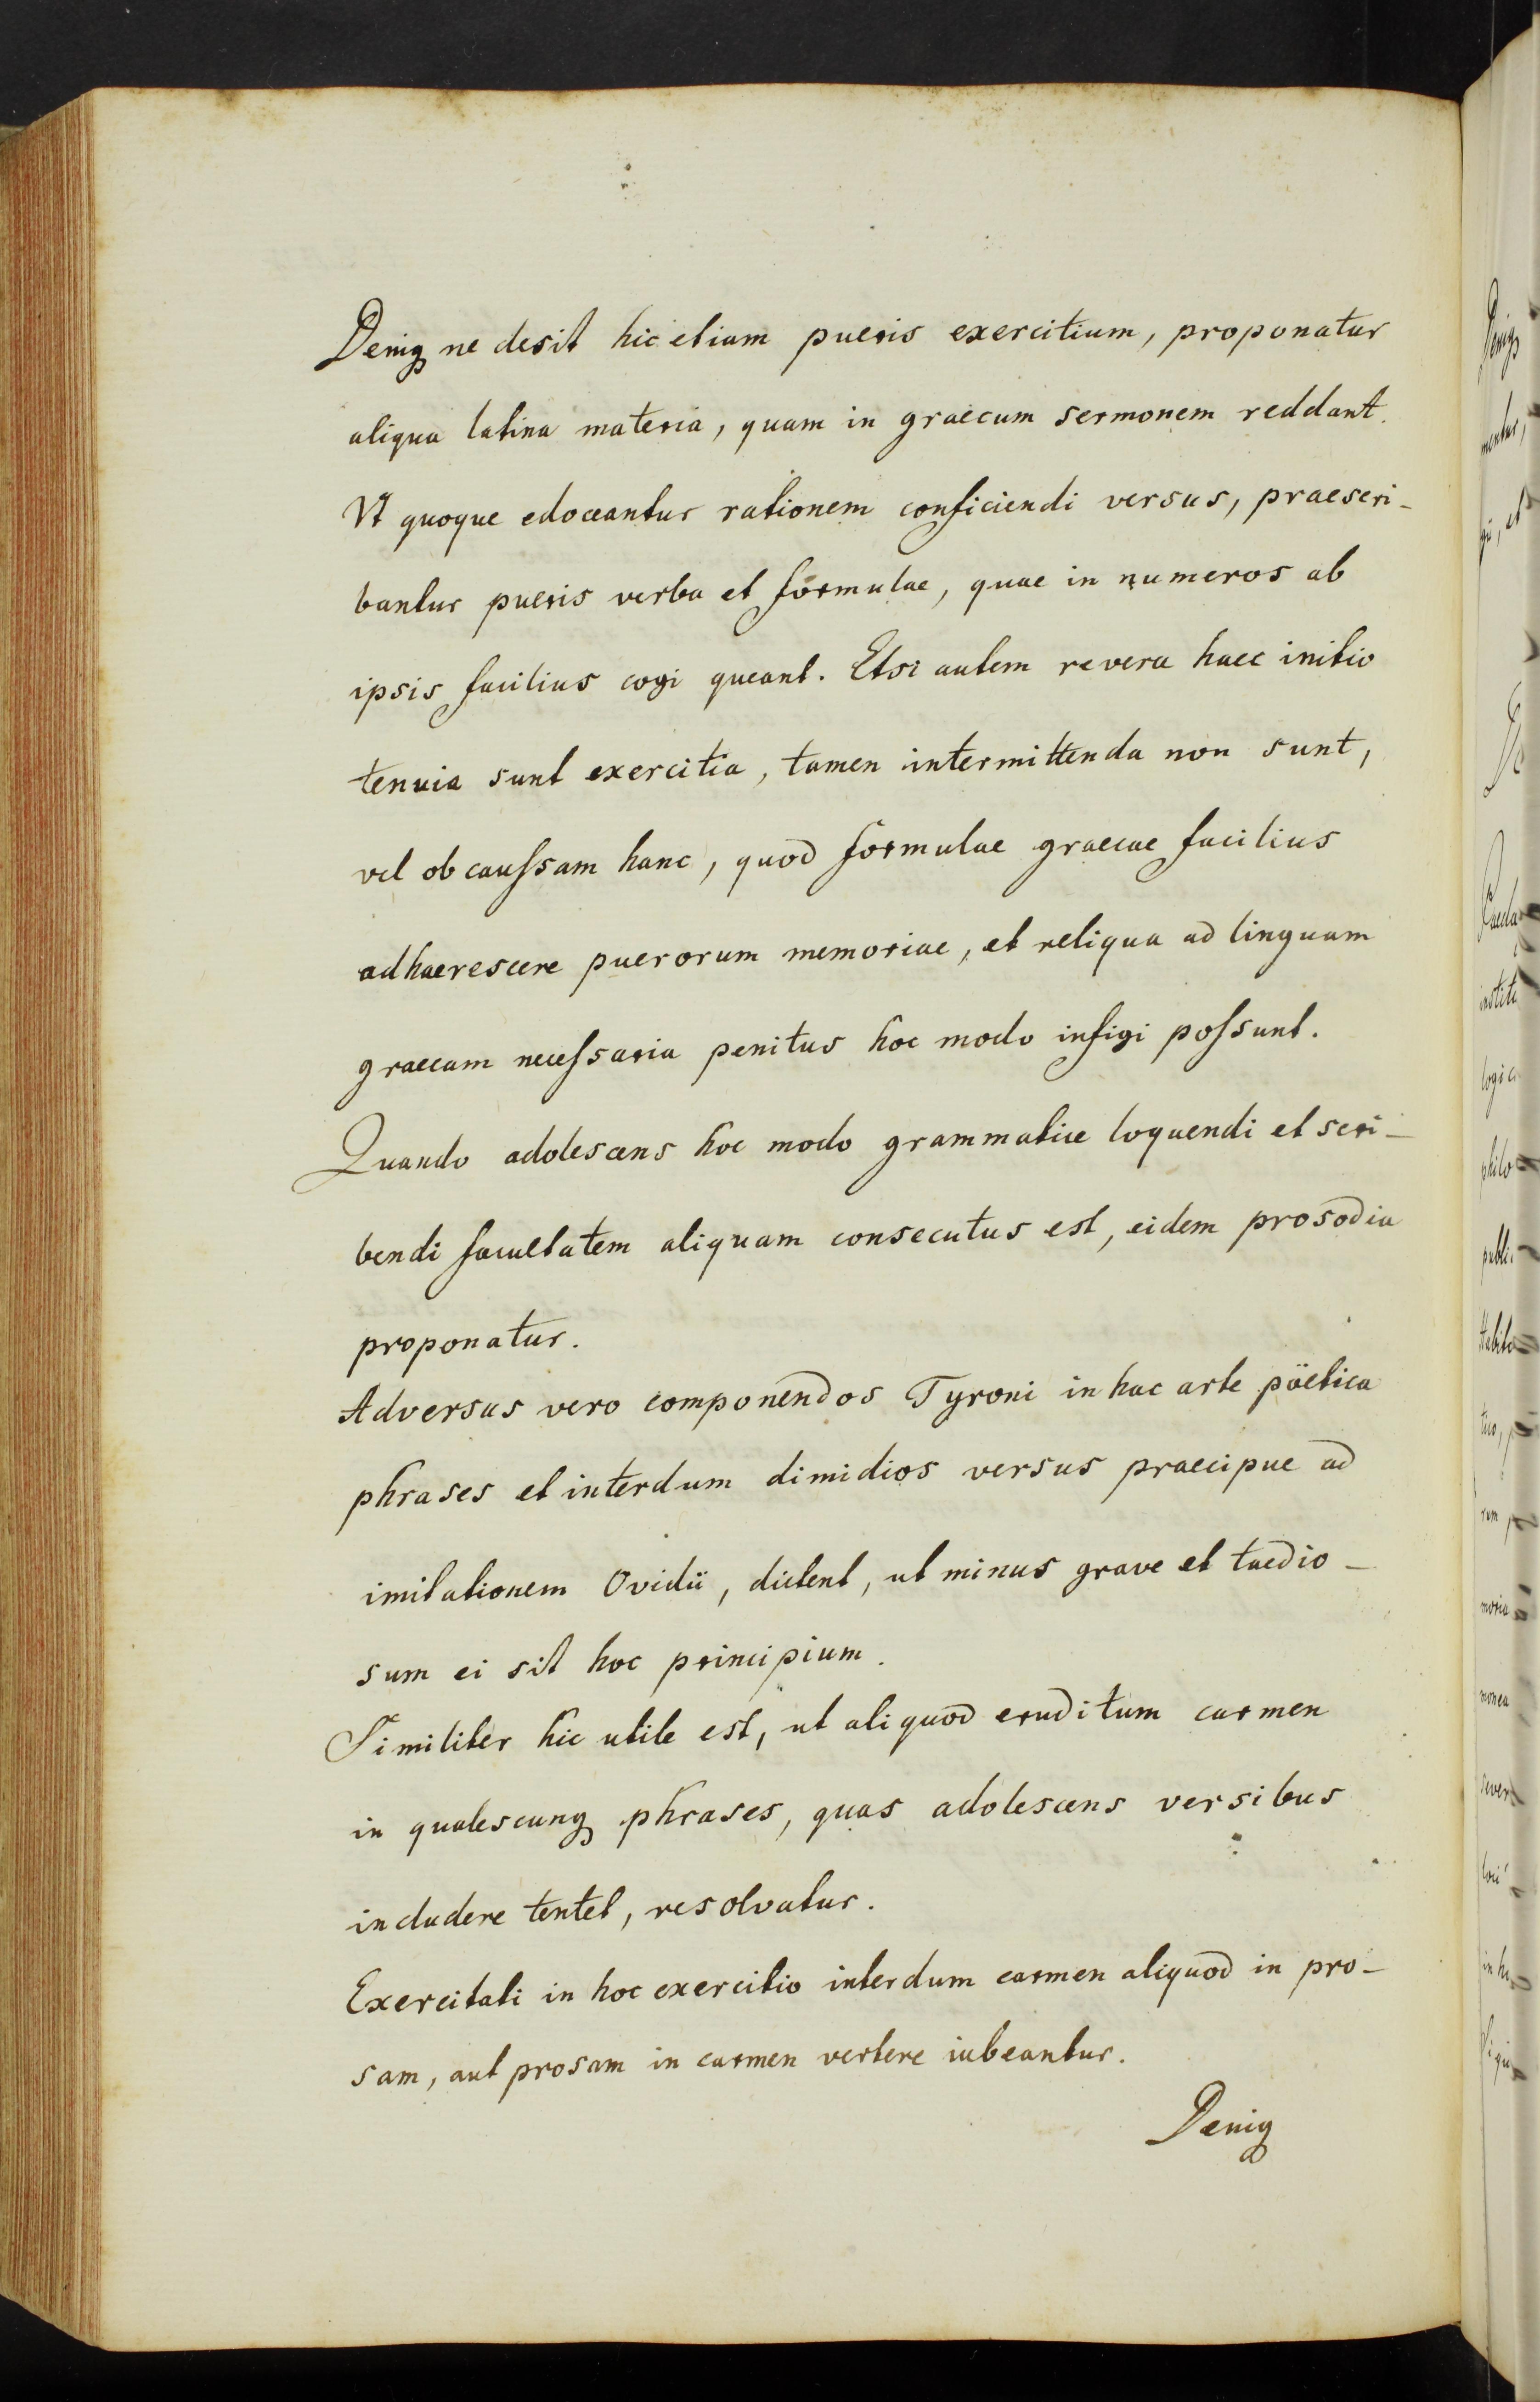 Deniq ne desit hic etiam pueris exercitium, proponatur
aliqua latina materia, quam in graecum sermonem reddant.
Vt quoque edoceantur rationem conficiendi versus, praescri-
bantur pueris verba et formulae, quae in numeros ab
ipsis facilius cogi queant. Etsi autem revera haec initio
tenuia sunt exercitia, tamen intermittenda non sunt,
vel ob caussam hanc, quod formulae graecae facilius
adhaerescere puerorum memoriae, et reliqua ad linguam
graecam necessaria penitus hoc modo infigi possunt.
Quando adolescens hoc modo grammatice loquendi et scri-
bendi facultatem aliquam consecutus est, eidem prosodia
proponatur.
Adversus vero componendos Tyroni in hac arte pöetica
phrases et interdum dimidios versus praecipue ad
imitationem Ovidii, dictent, ut minus grave et taedio-
sum ei sit hoc principium.
Similiter hic utile est, ut aliquod eruditum carmen
in qualescunq phrases, quas adolescens versibus
includere tentet, resolvatur.
Exercitati in hoc exercitio interdum carmen aliquod in pro-
sam, aut prosam in carmen vertere iubeantur.
Deniq